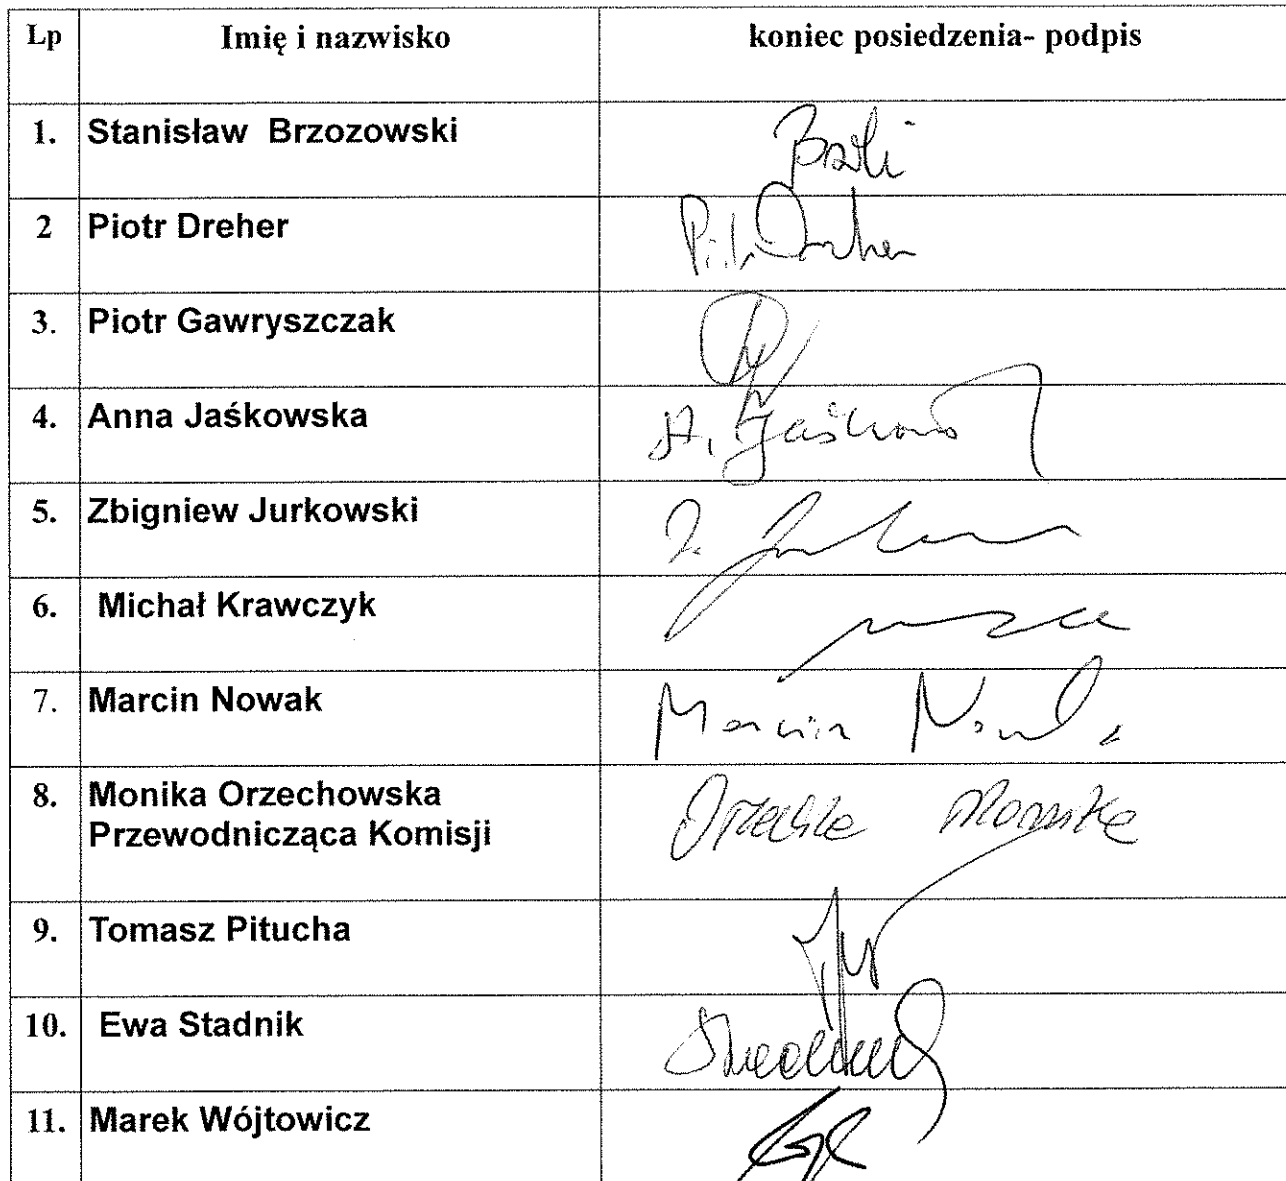 Lp Imię i nazwisko koniec posiedzenia- podpis
1. Stanisław Brzozowski
2 Piotr Dreher
3. Piotr Gawryszczak
4. Anna Jaśkowska A. Jaśkows
5. Zbigniew Jurkowski
6. Michał Krawczyk
7. Marcin Nowak Marcin Nowak
8. Monika Orzechowska
Przewodnicząca Komisji
9. Tomasz Pitucha
10. Ewa Stadnik
11. Marek Wójtowicz